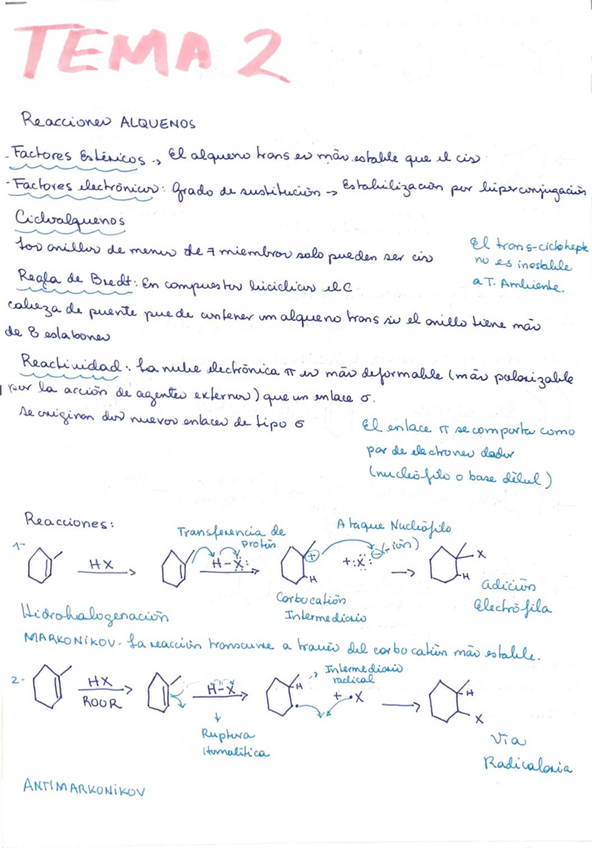 TEMA 2
Reacciones ALQUENOS
- Factores Estéricos → El alqueno trans es más estable que el cis
- Factores electrónicos: Grado de sustitución → Estabilización por hiperconjugación
Cicloalquenos
Los anillos de menos de 7 miembros solo pueden ser cis
El trans-ciclohepte
no es inestable
a T. Ambiente.
Regla de Bredt: En compuestos bicíclicos el C
cabeza de puente puede contener un alqueno trans si el anillo tiene más
de 8 eslabones
Reactividad: La nube electrónica π es más deformable (más polarizable
por la acción de agentes externos) que un enlace σ.
Se originan dos nuevos enlaces de tipo σ
El enlace π se comporta como
par de electrones dador
(nucleófilo o base débil)
Reacciones:
Transferencia de
protón
Ataque Nucleófilo
(-ión)
1- HX H-X: + H + :X: - X H
Carbocatión
Intermediario
adición
electrófila
Hidrohalogenación
MARKONIKOV- La reacción transcurre a través del carbocatión más estable.
Intermediario
radical
2- HX H-X H + •X H X
ROOR
Ruptura
Homolítica
Vía
Radicalaria
ANTIMARKONIKOV